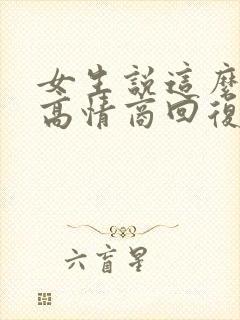 女生說這麼
高情商回復
六盲星